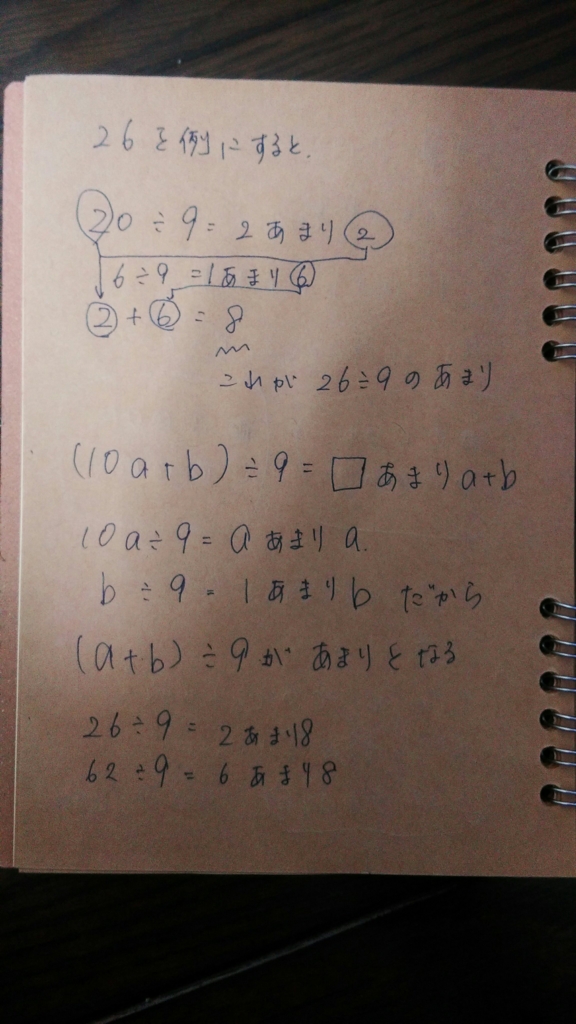 26を例にすると.
20÷9=2あまり2
6÷9=1あまり6
2+6=8
これが 26÷9のあまり
(10a+b)÷9=□あまりa+b
10a÷9=aあまりa.
b÷9=1あまりb だから
(a+b)÷9が あまりとなる
26÷9=2あまり8
62÷9=6あまり8